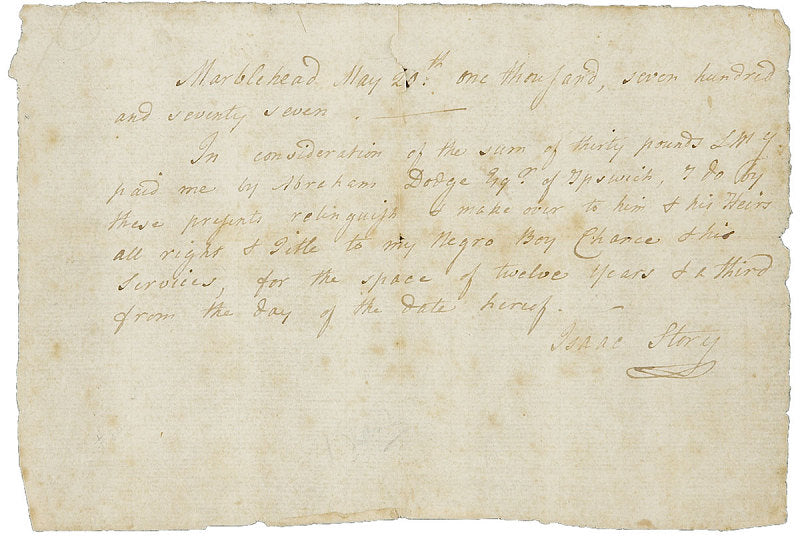 Marblehead May 20th. one thousand, seven hundred
and seventy seven. —
In consideration of the sum of thirty pounds LM y
paid me by Abraham Dodge Esqr. of Ipswich, I do by
these presents relinquish & make over to him & his Heirs
all right & Title to my Negro Boy Chance & his
Services, for the space of twelve Years & a third
from the day of the date hereof. —
Isaac Story